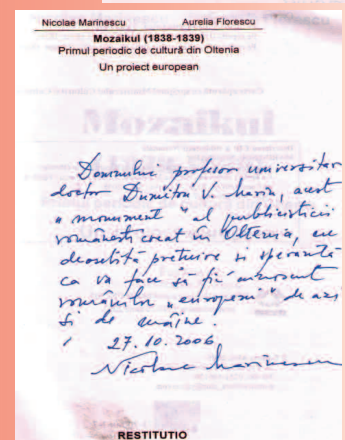 Nicolae Marinescu Aurelia Florescu
Mozaikul (1838-1839)
Primul periodic de cultură din Oltenia
Un proiect european
Domnului profesor universitar
doctor Dumitru V. Marin, acest
„monument" al publicisticii
românești creat în Oltenia, cu
deosebită prețuire și speranță
că va face să fie cunoscut
românilor „europeni" de azi
și de mâine.
27.10.2006
Nicolae Marinescu
RESTITUTIO